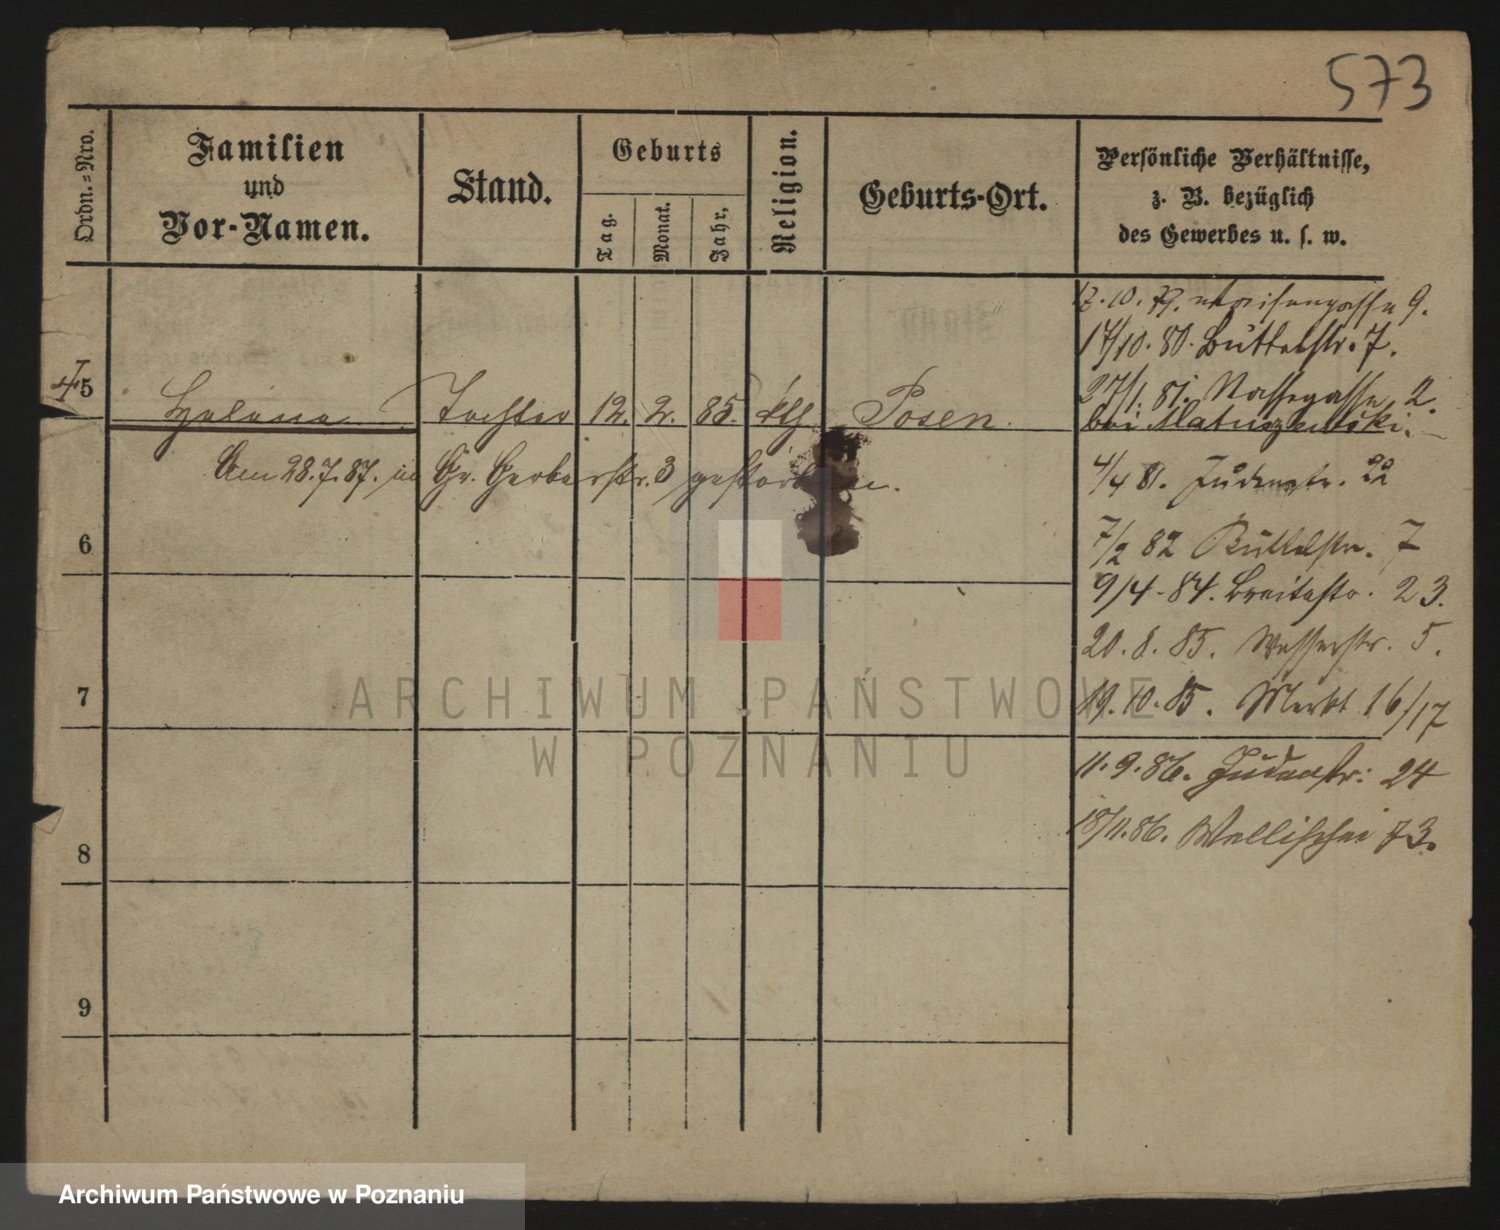 573
Ordn.-Nro.
Familien
und
Vor-Namen.
Stand.
Geburts
Tag.
Monat.
Jahr.
Religion.
Geburts-Ort.
Persönliche Verhältnisse,
z. B. bezüglich
des Gewerbes u. s. w.
17.10.79. Waisengasse 9.
17/10.80. Büttelstr. 7.
27/1.81. Nassegasse 2.
bei Matuszewski.
5 Helena Tochter 12. 2. 85. kth. Posen.
Am 28.7.87. in Gr. Gerberstr. 3 gestorben.
4/4 81. Judenstr. 22
6
7/2 82 Büttelstr. 7
9/4.84. Breitestr. 23.
20.8.85. Wasserstr. 5.
7
19.10.85. Markt 16/17
11.9.86. Judenstr: 24
18/11.86. Wallischei 73.
8
9
ARCHIWUM PAŃSTWOWE
W POZNANIU
Archiwum Państwowe w Poznaniu